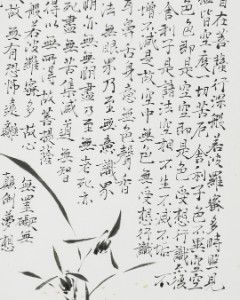 自在菩薩行深般若波羅蜜多時照見
皆空度一切苦厄舍利子色不異空空
色即是空空即是色受想行識亦復
舍利子是諸法空相不生不滅不垢不
增不減是故空中無色無受想行識
意無色聲香
法無眼界乃至無意識界
明亦無無明盡乃至無老死亦
無苦集滅道無智
得以無所得故菩提薩
般若波羅蜜多故心無罣礙無
故無有恐怖遠離顛倒夢想